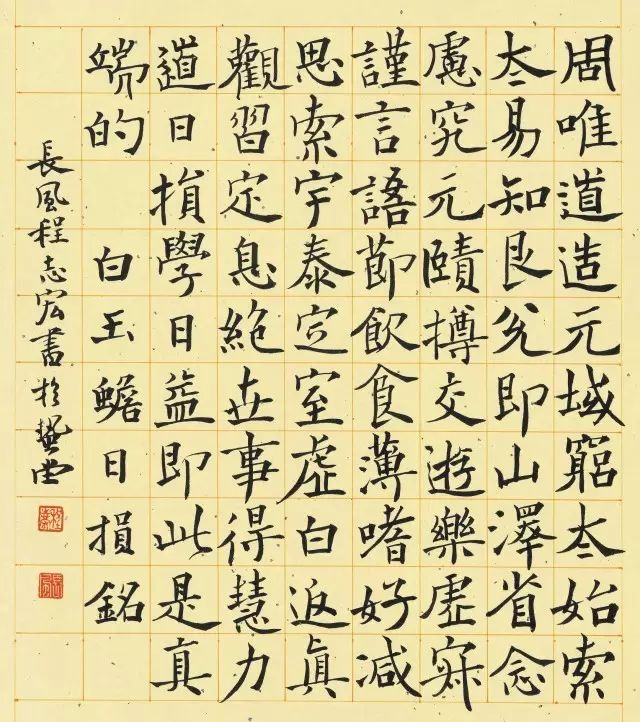 周唯道造元域窮太始索
太易知艮兌即山澤省念
慮究元賾撙交遊樂虛寂
謹言語節飲食薄嗜好減
思索宇泰定室虛白返眞
觀習定息絕世事得慧力
道日損學日益即此是真
端的 白玉蟾日損銘
長風程志宏書於